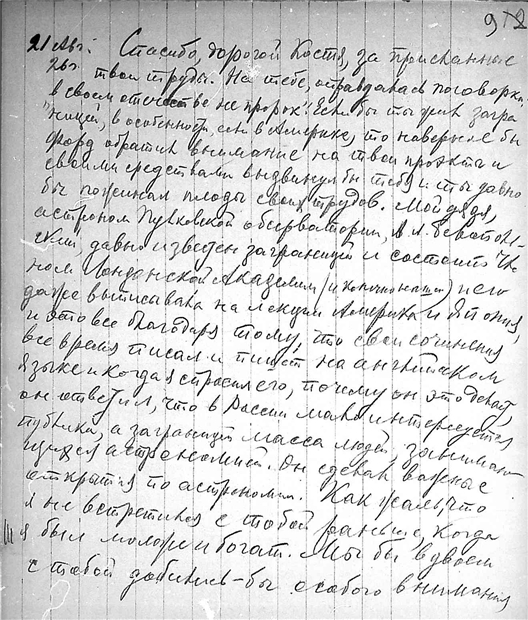 912
21 Авг.
26 г.
Спасибо, дорогой Костя, за присланные
твои труды. На тебе, оправдалась поговорка
в своем отечестве не пророк". Если бы ты жил загра
ницей, в особенности, если в Америке, то наверное бы
Форд обратил внимание на твои проэкта и
своими средствами выдвинул бы тебя и ты давно
бы пожинал плоды своих трудов. Мой дядя,
астроном Пулковской обсерватории,
давно известен заграницей и состоит Чле
ном Лондонской Академии и его
даже выписывала на лекции Америка и Япония,
и это все благодаря тому, что свои сочинения
все время писал и пишет на английском
языке и когда я спросил его, почему он это делает,
он ответил, что в России мало интересуется
публика, а заграницей масса людей, занимаю
щихся астрономией. Он сделал важные
открытия по астрономии. Как жаль, что
я не встретился с тобой раньше, когда
я был молож и богат. Мы бы вдвоем
с тобой добились-бы особого внимания